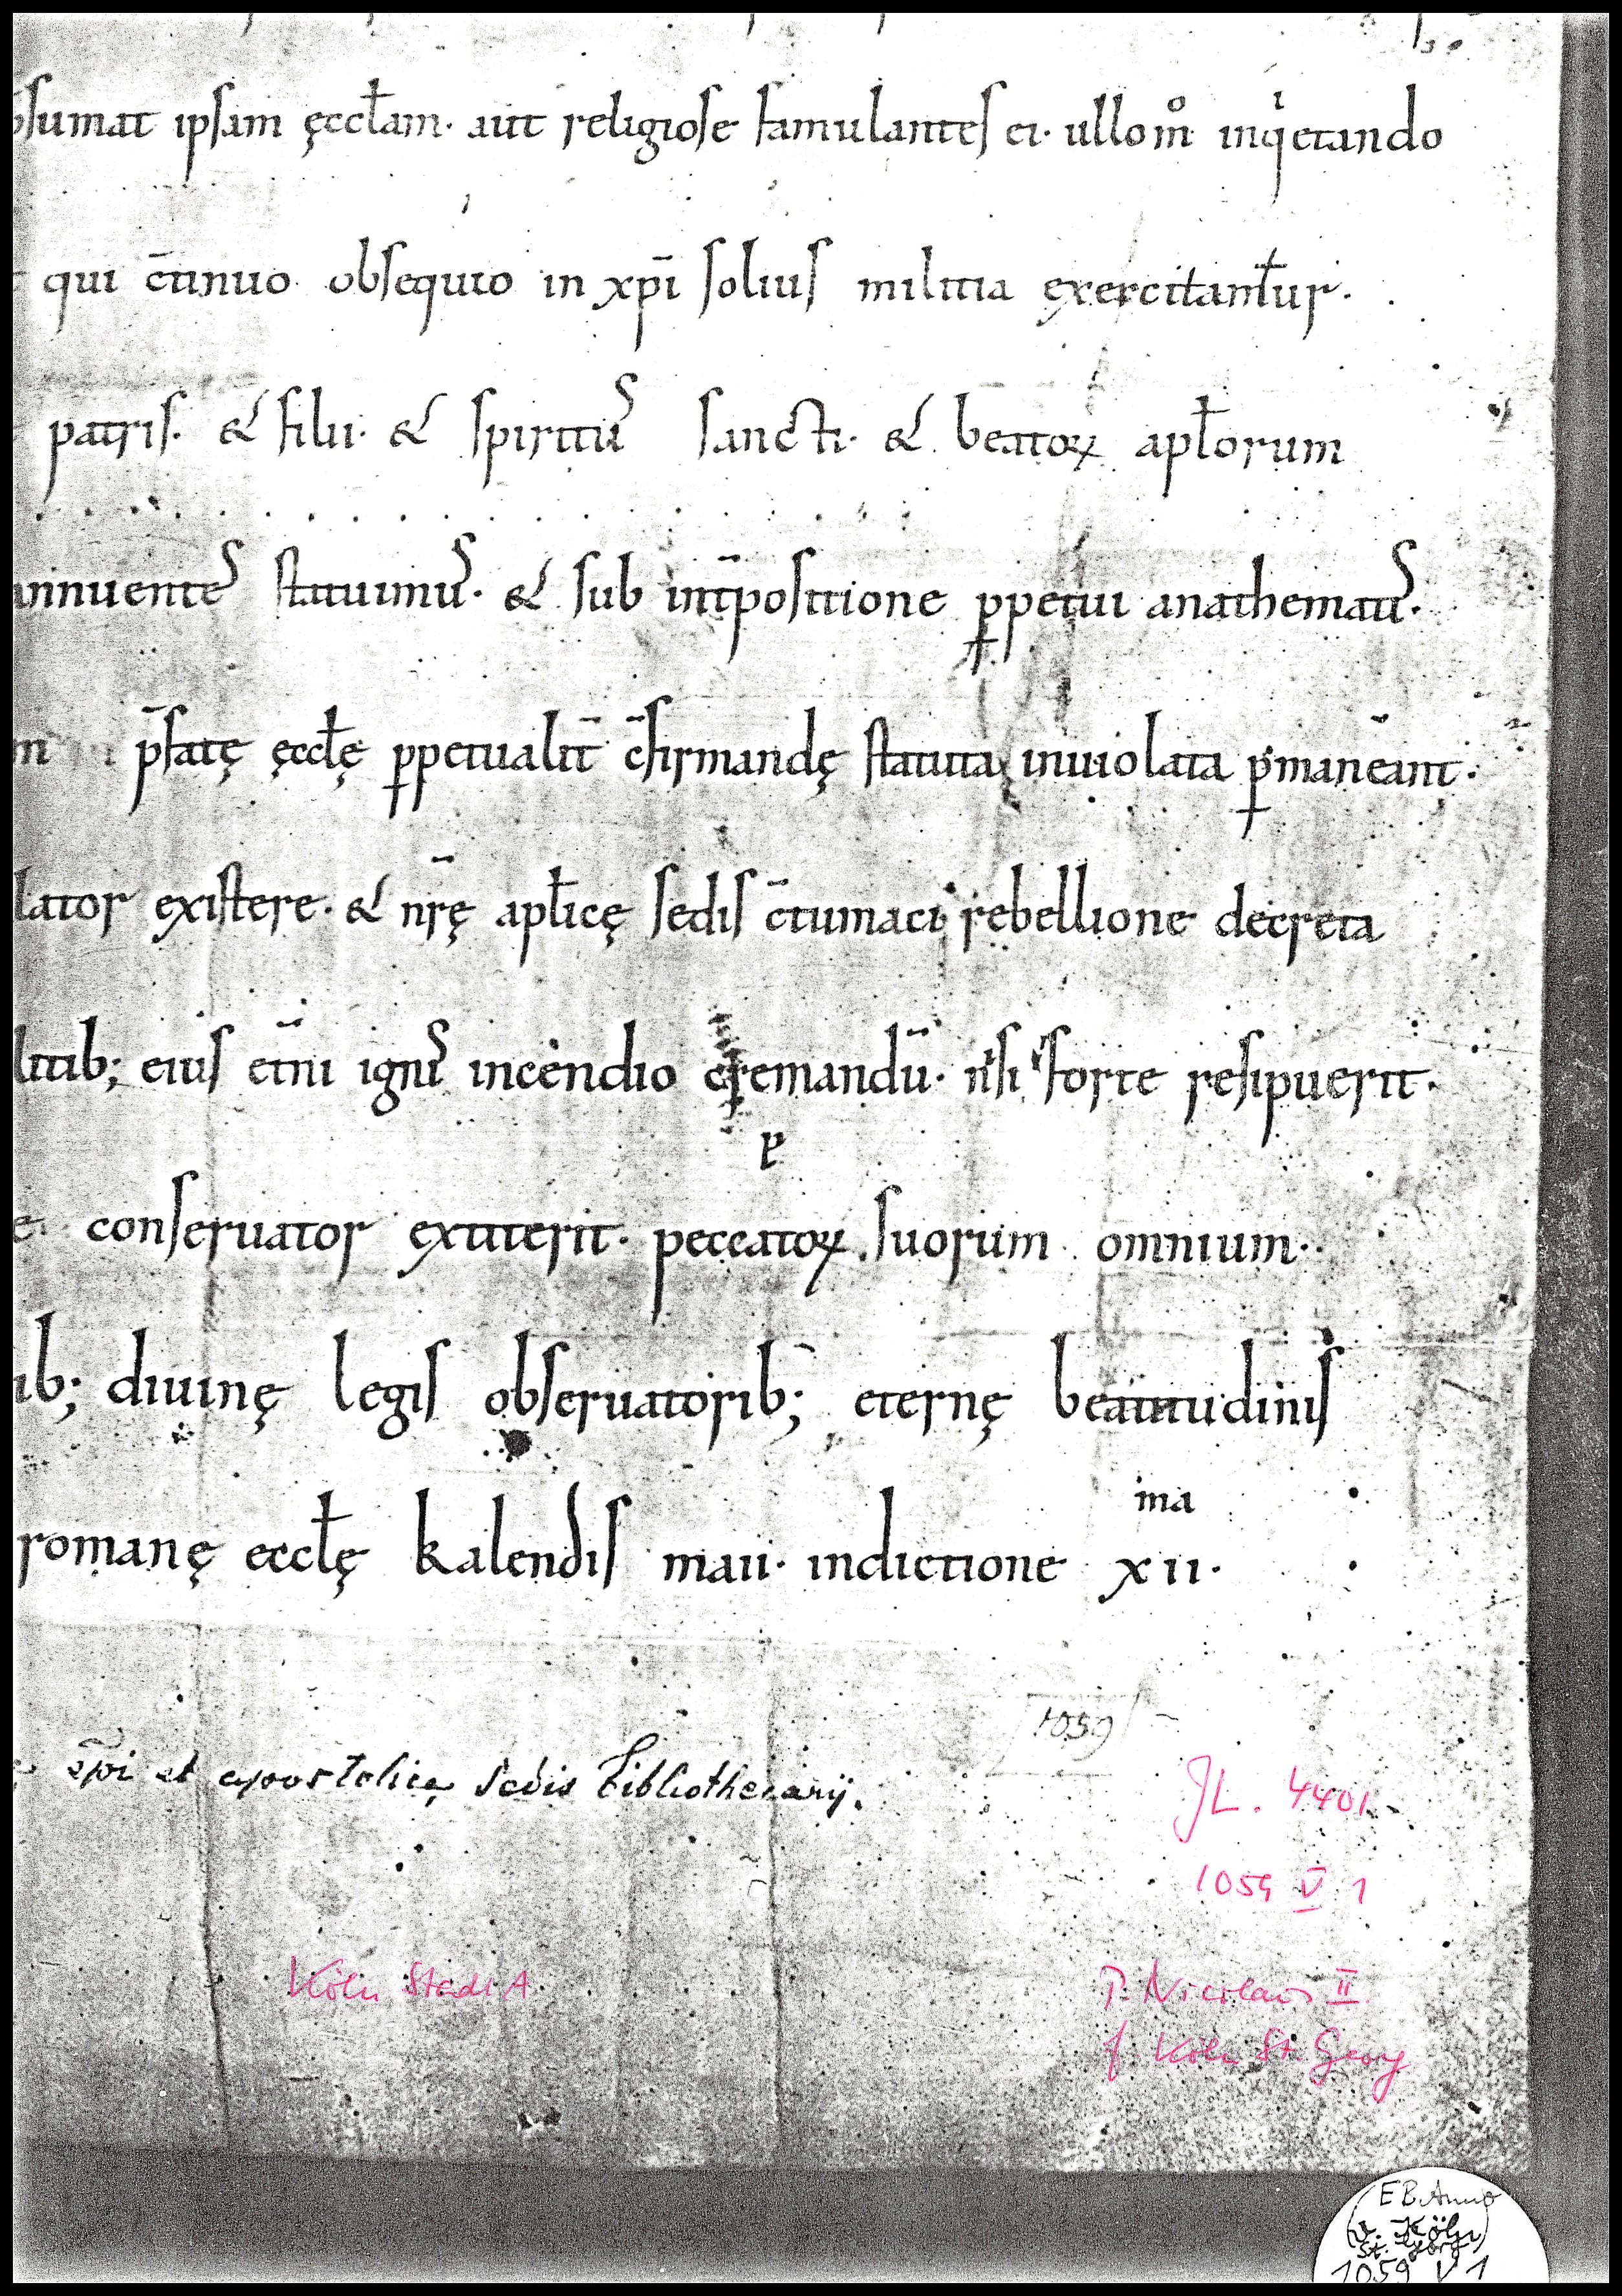 sumat ipsam ęccłam· aut religiose famulantes ei· ullom̊ inqͥetando
qui c̄tinuo obsequio in xp̄i solius militia exercitant᷑ur·
patris· & filii· & spiritus sancti· & beatoꝝ apłorum
annuentes statuimus· & sub int̄positione ꝑpetui anathematis·
p̄fatę ęccłę ꝑpetualit̄ c̄firmandę statuta inuiolata ꝑmaneant·
lator existere· & nr̄ę apłicę sedis c̄tumaci rebellione decreta
litib; eius et̄ni ignis incendio cremandū· nisi forte resipuerit·
e conseruator extiterit· peccatoꝝ suorum omnium·
ib; diuinę legis obseruatorib; eternę beatitudinis
romanę eccłę kalendis maii· indictione xii·ma
1059
ep̄i et apostolicę Sedis Bibliothecarij.
JL. 4401
1059 V 1
Köln Stadt A
P. Nicolaus II
f. Köln St. Georg
EB. Anno
v. Köln
St. Georg
1059 V 1